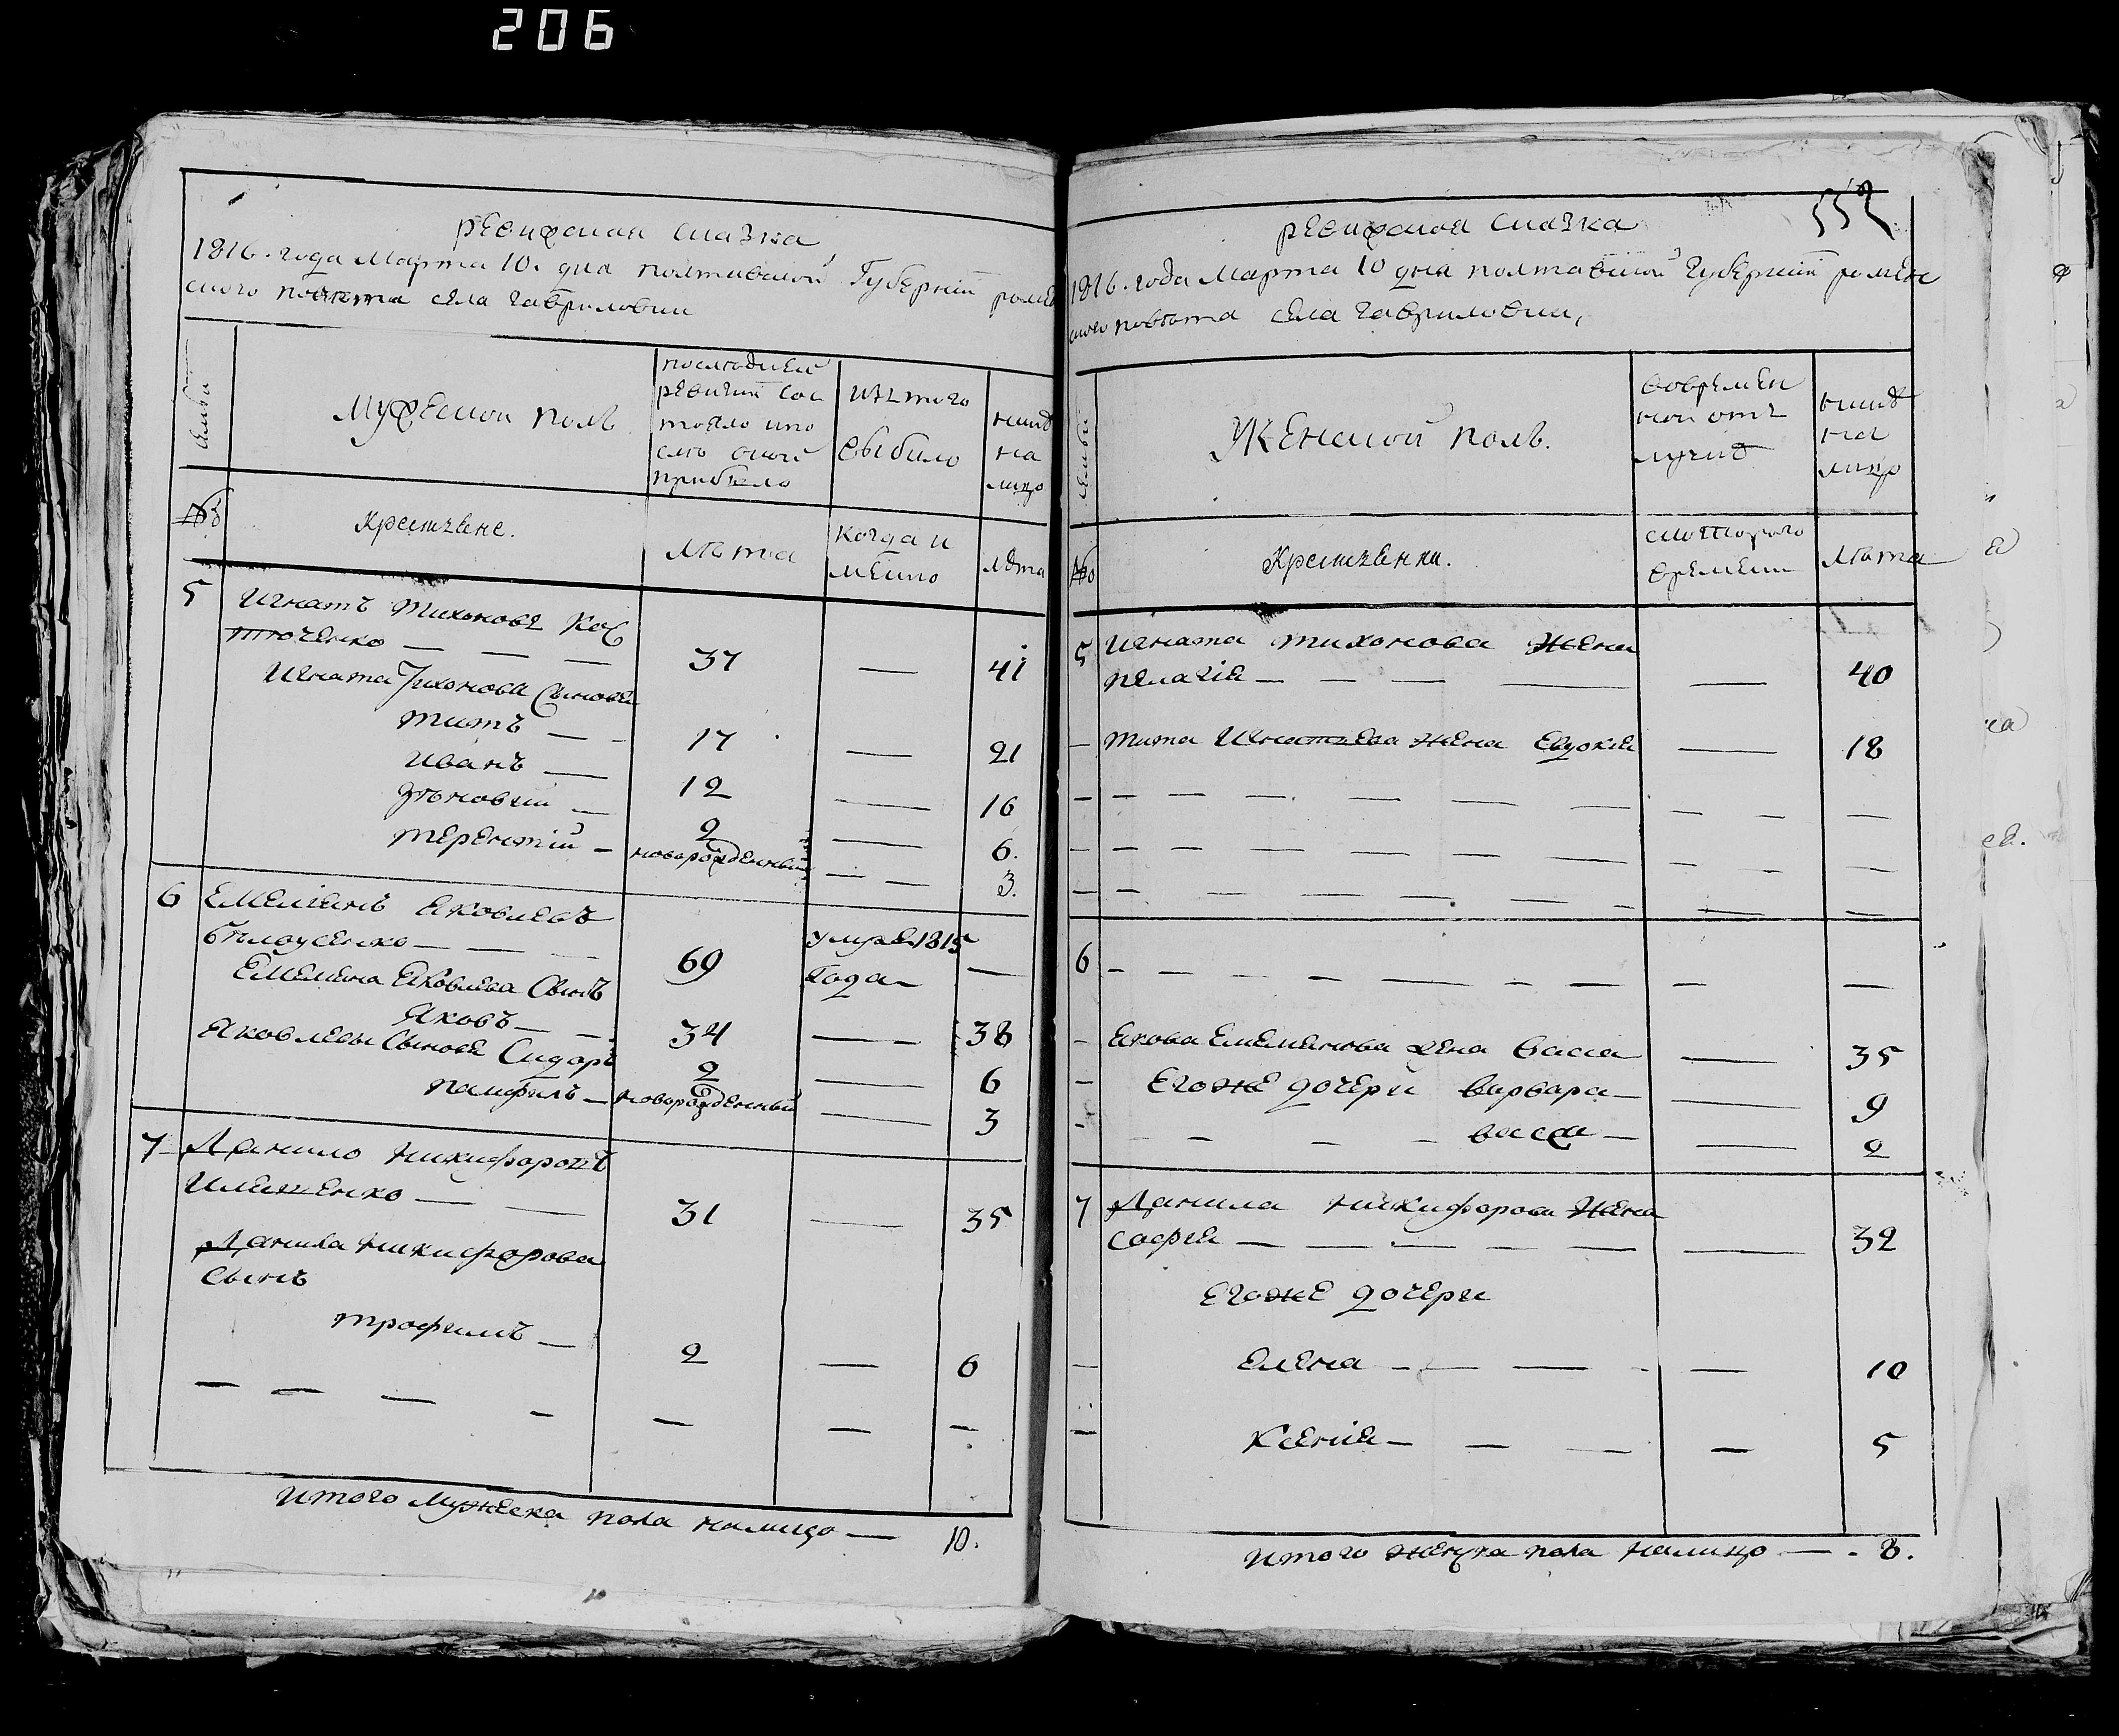 206
ревижская сказка
1816. года Марта 10. дня полтавской Губерніи ромен
ского повѣта села гавриловки
семьи
Мужеской полъ
последней
ревизіи сос
тояло и по
слѣ оной
прибыло
изъ того
выбыло
нинѣ
на
лицо
№
Крестяне.
Лѣта
когда и
мѣнно
лѣта
5
Игнатъ Тихоновъ Кос
тюченко
37
41
Игната Тихонова Сыновя
титъ
17
21
Иванъ
12
16
зѣновій
2
6.
терентій
новорожденный
3.
6
Емелянъ Яковлевъ
бѣлоусенко
69
умре 1815
Года
Емеляна Яковлева Сынъ
Яковъ
34
38
Яковлевы Сыновя Сидоръ
2
6
памфилъ
новорожденный
3
7
Данило никифоровъ
Иляшенко
31
35
Данила никифорова
Сынъ
трофимъ
2
6
итого мужеска пола налицо 10.
552
ревижская сказка
1816. года Марта 10 дня полтавской Губерніи ромен
ского повѣта села гавриловки,
семьи
Женской полъ.
вовремен
ной отъ
лучкѣ
нинѣ
на
лицо
№
Крестянки.
с котораго
времени
Лѣта
5
Игната тихонова жена
пелагія
40
тита Игнатьева жена Евдокия
18
6
Якова Емелянова жена васса
35
Егоже дочери варвара
9
васса
2
7
Данила никифорова жена
софия
32
Егоже дочери
Елена
10
Ксенія
5
итого женска пола налицо 8.